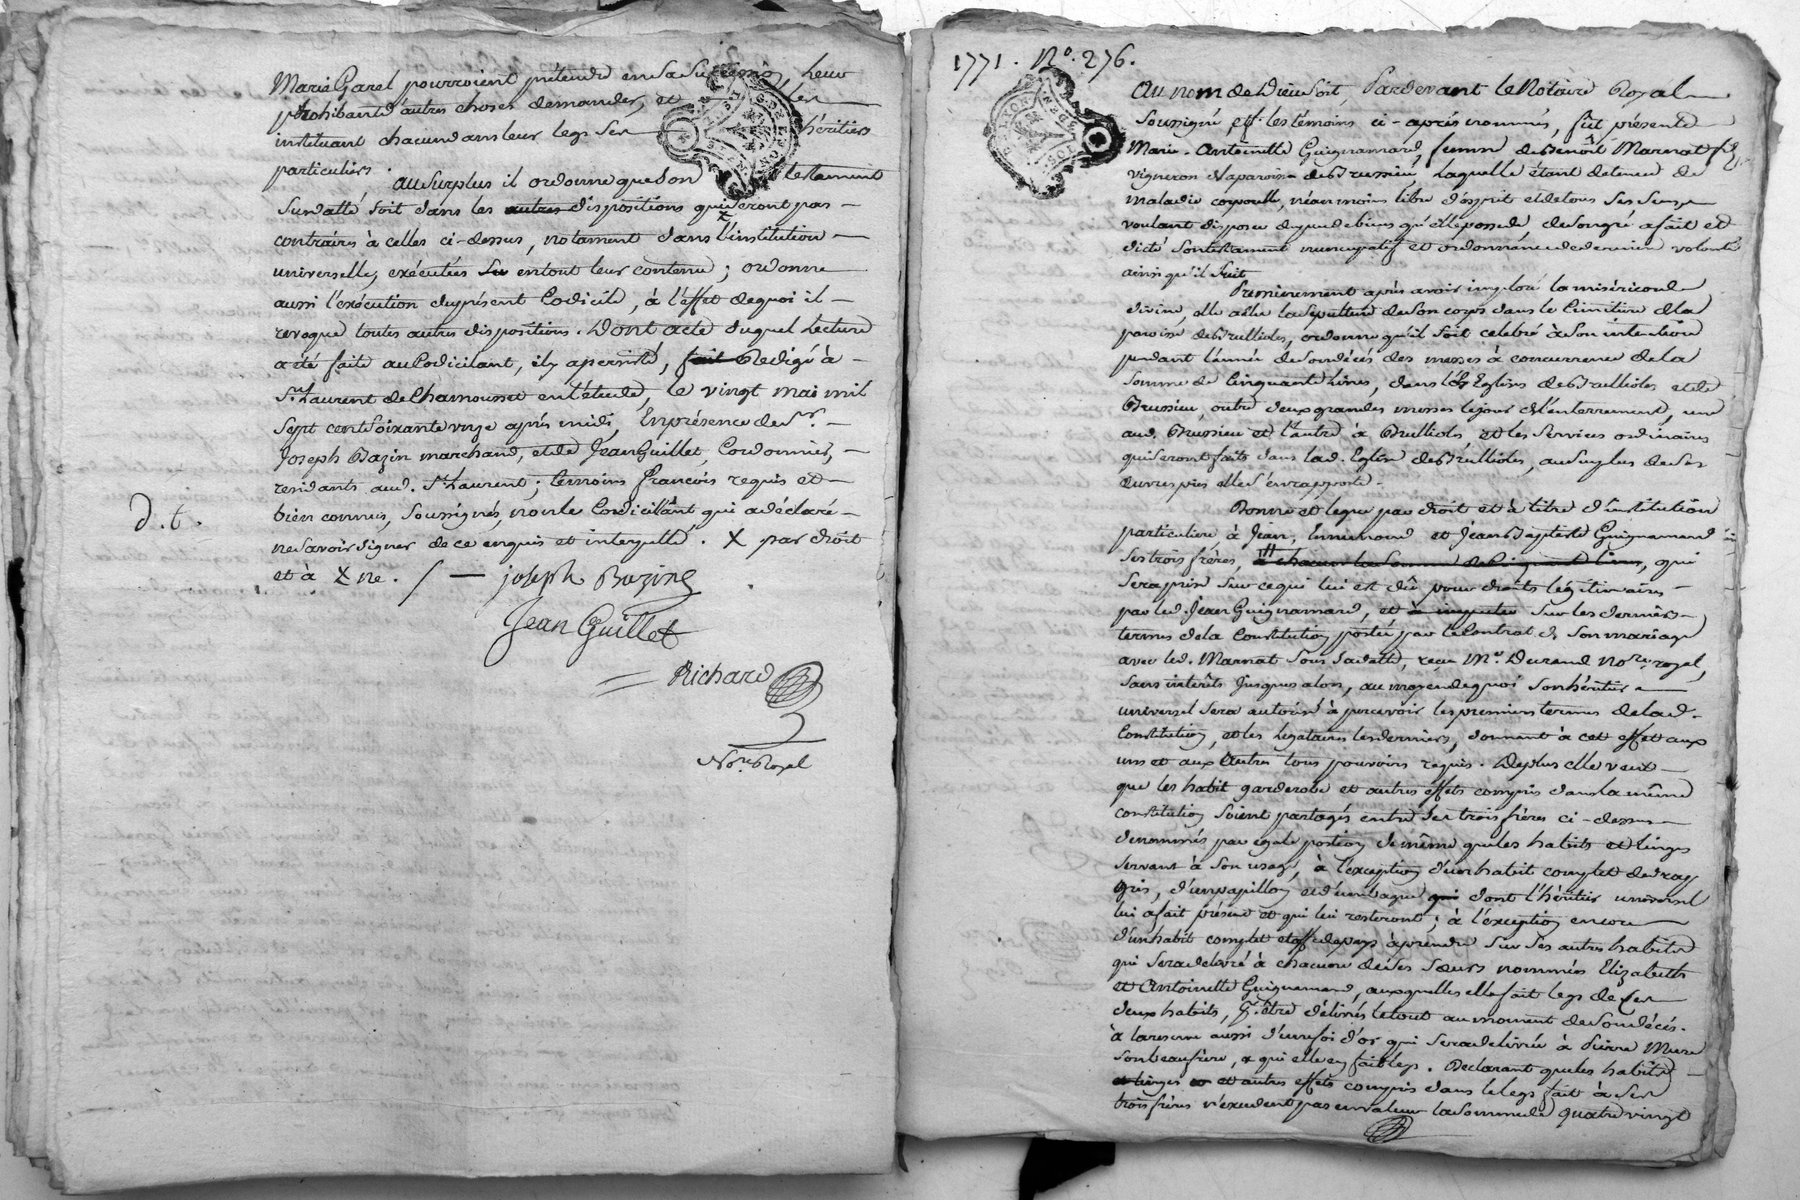 Marie Garel pourroient prétendre en sa succession, leur
prohibant d'autres choses demander, et les
instituant chacun dans leur legs ses héritiers
particuliers.
au surplus il ordonne que son testament
susdatté soit dans les autres dispositions qui ne seront pas
contraires à celles ci-dessus, notament dans l'institution
universelle, exécutées en tout leur contenu; ordonne
aussi l'exécution du présent Codicile, à l'effet de quoi il
revoque toutes autres dispositions. Dont acte duquel lecture
a été faite au Codicilant, il y a persisté, fait Redigé à
St. Laurent de Chamousset en l'étude, le vingt mai mil
sept cent soixante onze après midi, En présence de Sr.
Joseph Bazin marchand, et de Jean Guillet Cordonnier,
residants aud. St. Laurent; temoins François requis et
bien connus, soussignés, non le Codicilant qui a déclaré
d. t.
ne savoir signer de ce enquis et interpellé. X par droit
et à X ne. /
joseph Bazin
Jean Guillet
Richard
No.re Royal
1771. No. 276.
Au nom de Dieu soit, Pardevant le Notaire Royal
Soussigné, et les témoins ci-après nommés, fut présente
Marie-Antoinette Guignamard, femme de Benoît Marnat
vigneron de la paroisse de Brussieu, Laquelle étant detenue de
maladie corporelle, néanmoins libre d'ésprit et de tous ses sens
voulant disposer du peu de biens qu'elle possede, de son gré a fait et
dicté son testament nuncupatif et ordonnance de derniere volonté
ainsi qu'il suit
Premierement après avoir imploré la miséricorde
divine, elle a élu la sépulture de son corps dans le Cimitiere de la
paroisse de Brullioles, ordonne qu'il soit celebré à son intention
pendant l'année de son décès des messes à concurrence de la
somme de Cinquante Livres, dans les Eglises de Brullioles et de
Brussieu, outre deux grandes messes le jour de l'enterrement, une
aud. Brussieu et l'autre à Brullioles, et les services ordinaires
qui seront faits dans lad. Eglise de Brullioles, au surplus de ses
œuvres pies elle s'en rapporte.
Donne et legue par droit et à titre d'institution
particuliere à Jean, Ennemond et Jean Baptiste Guignamard
ses trois frères, à chacun la somme de Cinquante Livres, qui
sera prise sur ce qui lui est dû pour droits légitimaires
par led. Jean Guignamard, et à imputer sur les derniers
termes de la Constitution portée par le Contrat de son mariage
avec led. Marnat sous sa datte, reçu Me. Durand No.re royal,
sans intérêts jusques alors, au moyen de quoi son héritier
universel sera autorisé à percevoir les premiers termes de lad.
Constitution, et les Legataires les derniers, donnant à cet effet aux
uns et aux autres tous pouvoirs requis. De plus elle veut
que les habit garderobe et autres effets compris dans la même
constitution soient partagés entre ses trois frères ci-dessus
denommés par égale portion, de même que les habits et linges
servant à son usage, à l'exception d'un habit complet de drap
gris, d'un papillon et d'une bague qui dont l'héritier universel
lui a fait présent et qui lui resteront; à l'exception encore
d'un habit complet étoffe de pays à prendre sur ses autres habits
qui sera delivré à chacune de ses sœurs nommées Elizabeth
et Antoinette Guignamard, auxquelles elle fait legs de ces
deux habits, pr. être délivrés le tout au moment de son décès.
à la reserve aussi d'une foi d'or qui sera delivrée à Pierre Mure
son beaufrère, à qui elle en fait legs. Declarant que les habits
et linges et autres effets compris dans le legs fait à ses
trois frères n'excedent pas en valeur la somme de quatre vingt